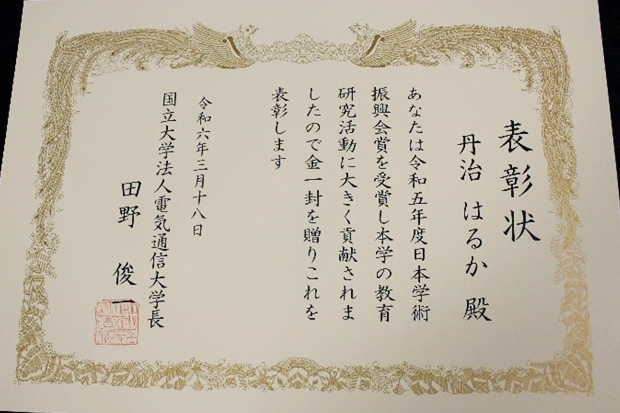 表彰状
丹治 はるか 殿
あなたは令和五年度日本学術
振興会賞を受賞し本学の教育
研究活動に大きく貢献されま
したので金一封を贈りこれを
表彰します
令和六年三月十八日
国立大学法人電気通信大学長
田野 俊一